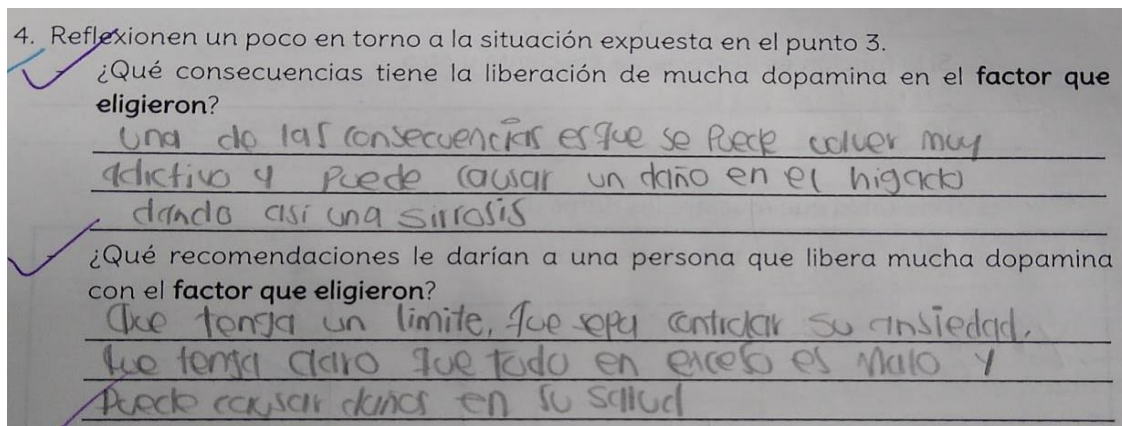 4. Reflexionen un poco en torno a la situación expuesta en el punto 3.
¿Qué consecuencias tiene la liberación de mucha dopamina en el factor que
eligieron?
una de las consecuencias es que se puede volver muy
adictivo y puede causar un daño en el higado
dando asi una sirrosis
¿Qué recomendaciones le darían a una persona que libera mucha dopamina
con el factor que eligieron?
Que tenga un limite, que sepa controlar su ansiedad,
que tenga claro que todo en exceso es malo y
puede causar daños en su salud